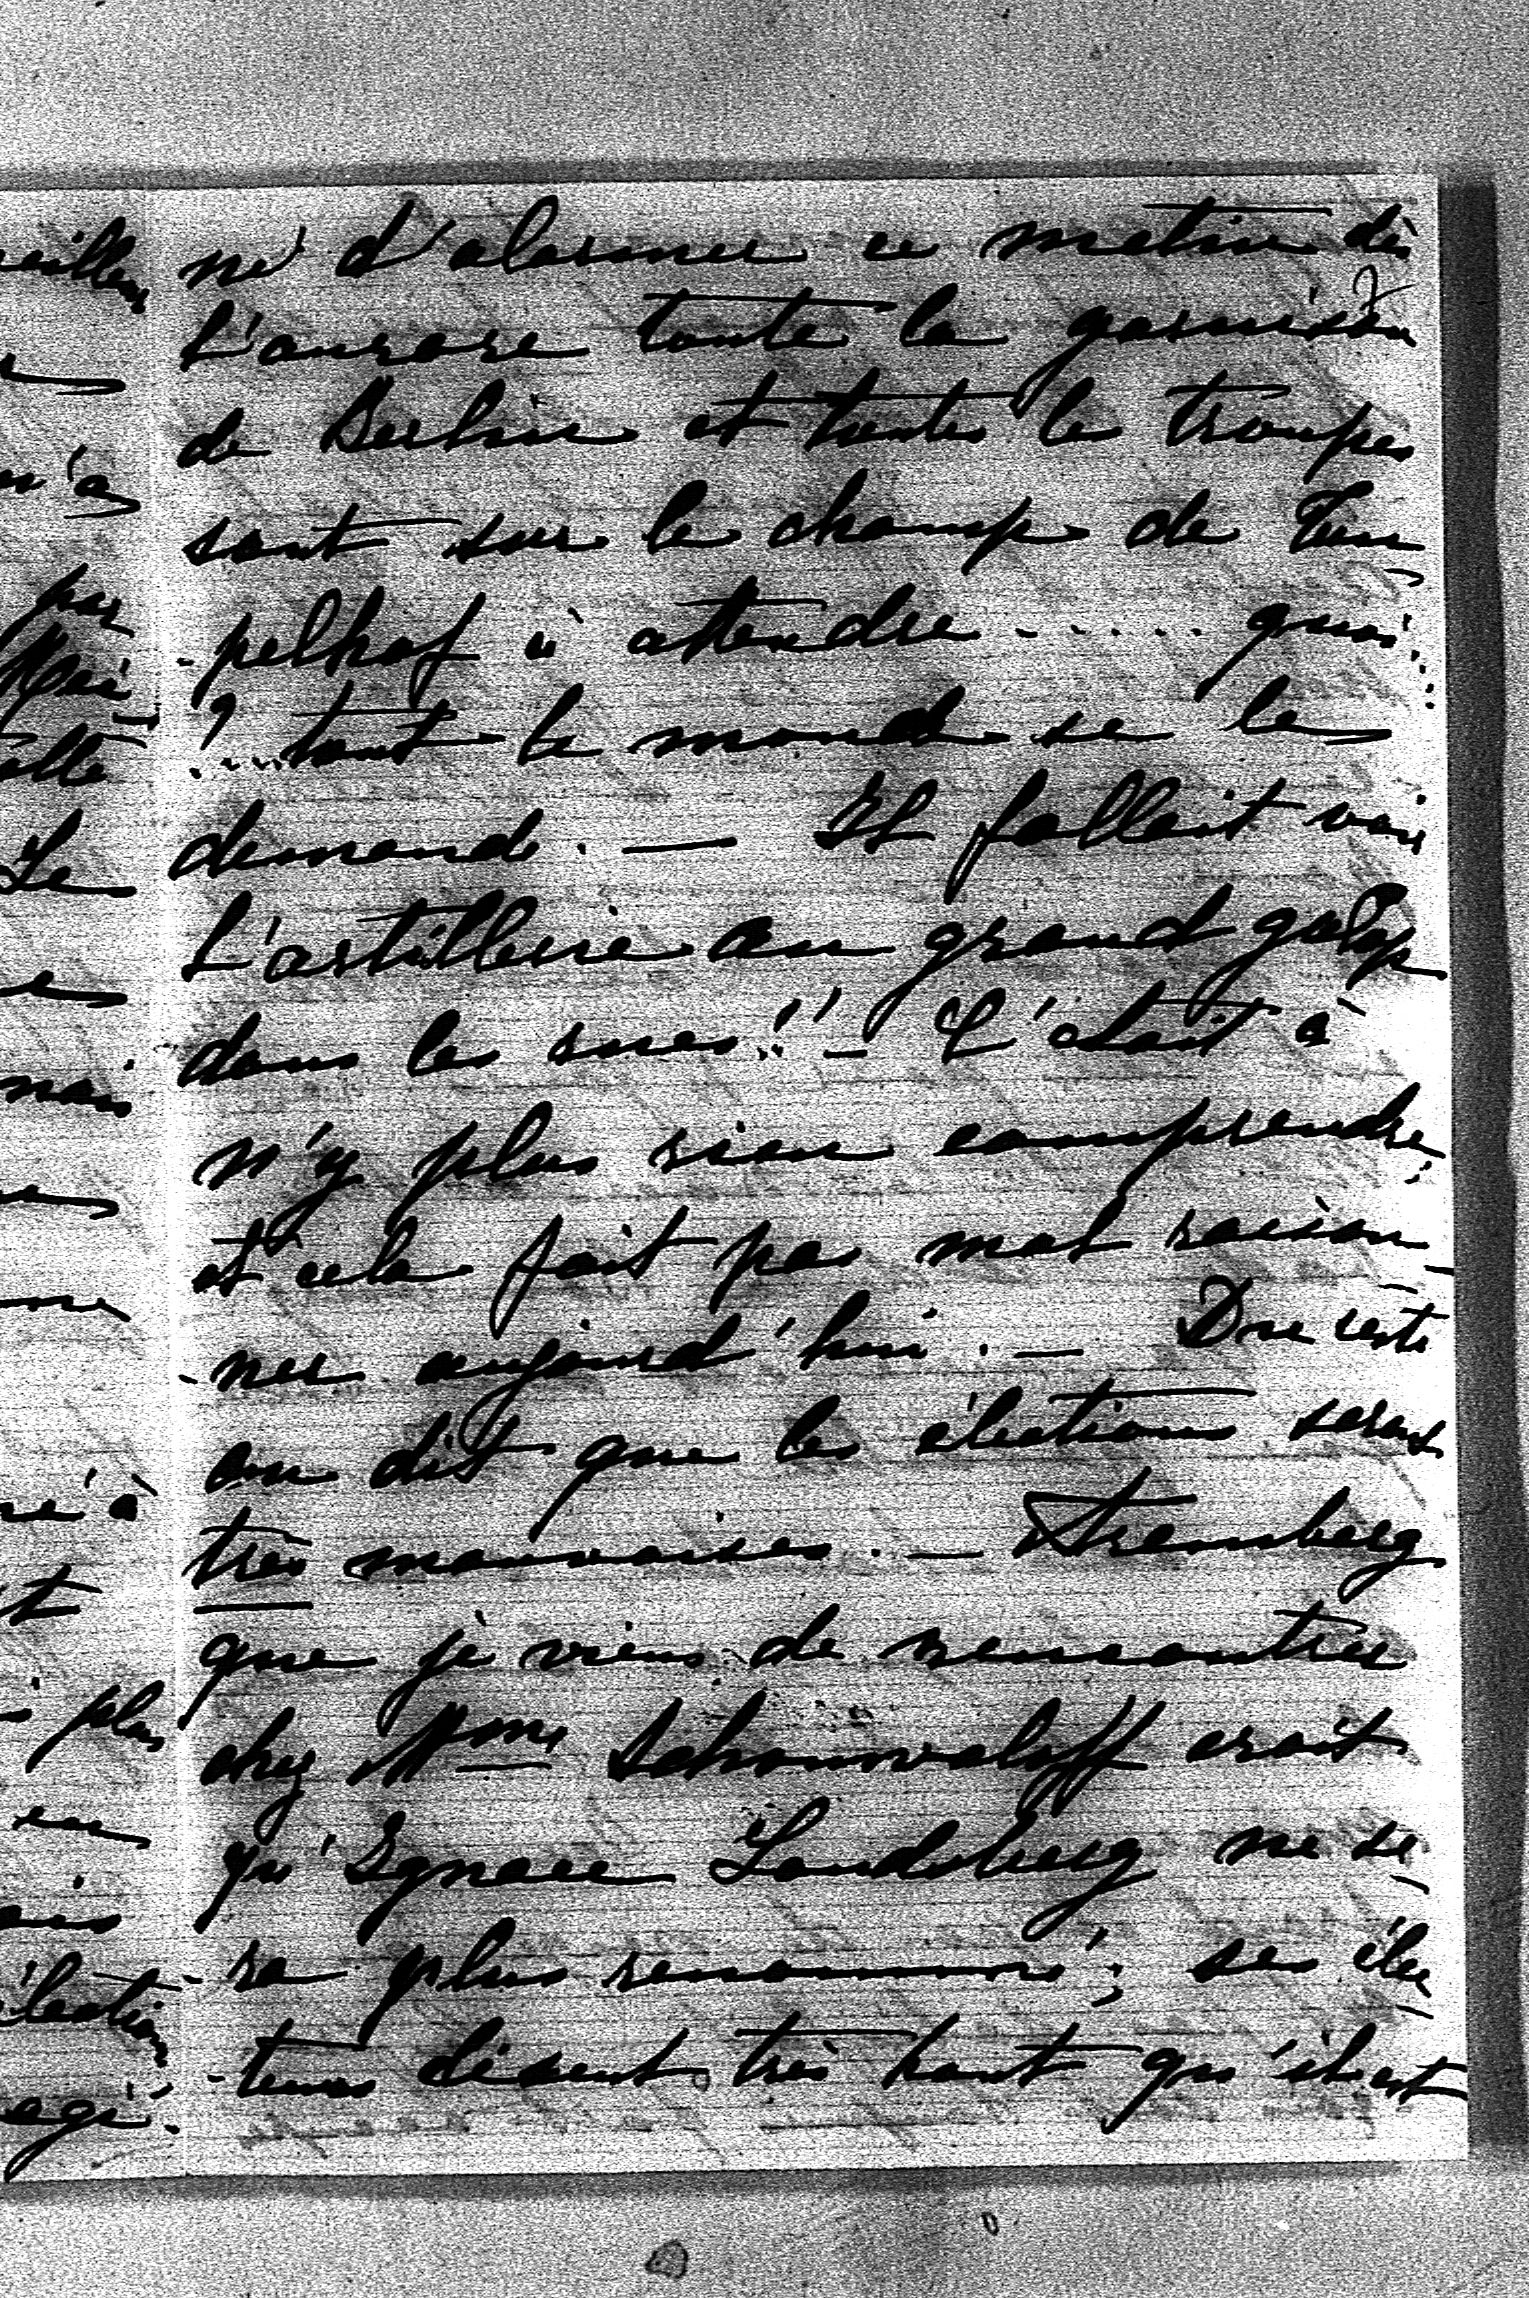 né d'alarmer ce matin dès
l'aurore toute la garnison
de Berlin et toutes les troupes
sont sur le champ de Tem
-pelhof à attendre ...... quoi..
? .... tout le monde se le
demande. — Il fallait voir
l'artillerie au grand galop
dans les rues!! — C'était à
n'y plus rien comprendre,
et cela fait pas mal raison
-ner aujourd'hui. — Du reste
on dit que les élections seront
très mauvaises. —
que je viens de rencontrer
chez Mme Schouvaloff croit
qu'Ignace Landsberg ne se
-ra plus renommé; ses élec
-teurs disent très haut qu'il est
eilleur
n'a
par
elle
Le
mais
né à
plus
élection